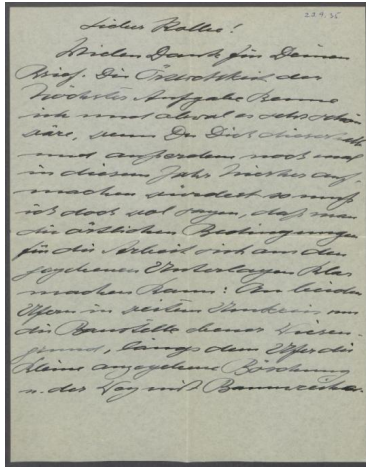 23.9.36
Lieber Kollee!
Vielen Dank für Deinen
Brief. Die Örtlichkeit der
Nächsten Aufgabe kenne
ich und obwol es sehr schön
wäre, wenn Du Dich dieserhalb
und außerdem noch mal
in diesem Jahr hierher auf
machen würdest so muß
ich doch wol sagen, daß man
die örtlichen Bedingungen
für die Arbeit sich aus den
gegebenen Unterlagen klar
machen kann: Am beiden
Ufern in weitem Umkreis um
die Baustelle ebener Wiesen-
grund, längs dem Ufer die
kleine angegebene Böschung
u. der Weg mit Baumreihe.